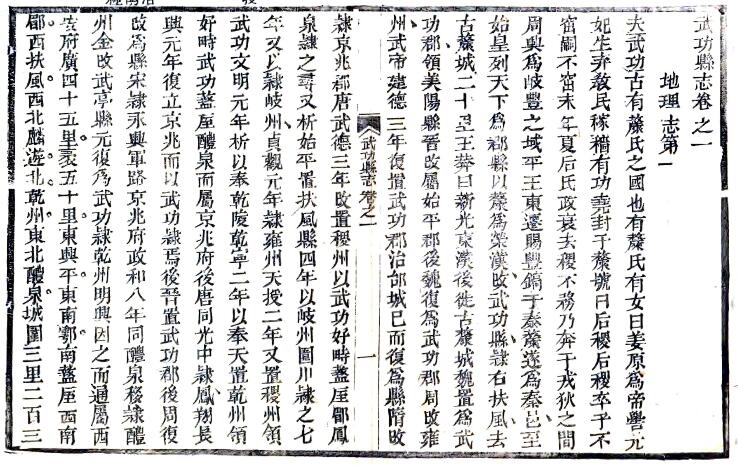 武功縣志卷之一
地理志第一
夫武功古有斄氏之國也有斄氏有女曰姜原爲帝嚳元
妃生弃教民稼穡有功堯封于斄號曰后稷后稷卒子不
窋嗣不窋末年夏后氏政衰去稷不務乃奔于戎狄之間
周興爲岐豐之域平王東遷賜豐鎬于秦斄遂爲秦邑至
始皇列天下爲郡縣以斄爲斄漢改武功縣隸右扶風去
古斄城二十里王莽曰新光東漢後徙古斄城魏置爲武
功郡領美陽縣晉改屬始平郡後魏復爲武功郡周改雍
州武帝建德三年復置武功郡治邰城已而復爲縣隋改
武功縣志 卷之一
一
隸京兆郡唐武德三年改置稷州以武功好畤盩厔郿鳳
泉隸之尋又析始平置扶風縣四年以岐州圍川隸之七
年又以隸岐州貞觀元年隸雍州天授二年又置稷州領
武功文明元年析以奉乾陵乾寧二年以奉天置乾州領
好畤武功盩厔醴泉而屬京兆府後唐同光中隸鳳翔長
興元年復立京兆而以武功隸焉後晉置武功郡後周復
改爲縣宋隸永興軍路京兆府政和八年同醴泉移隸醴
州金改武亭縣元復爲武功隸乾州明興因之而通屬西
安府廣四十五里袤五十里東興平東南鄠南盩厔西南
郿西扶風西北麟遊北乾州東北醴泉城圍三里二百三